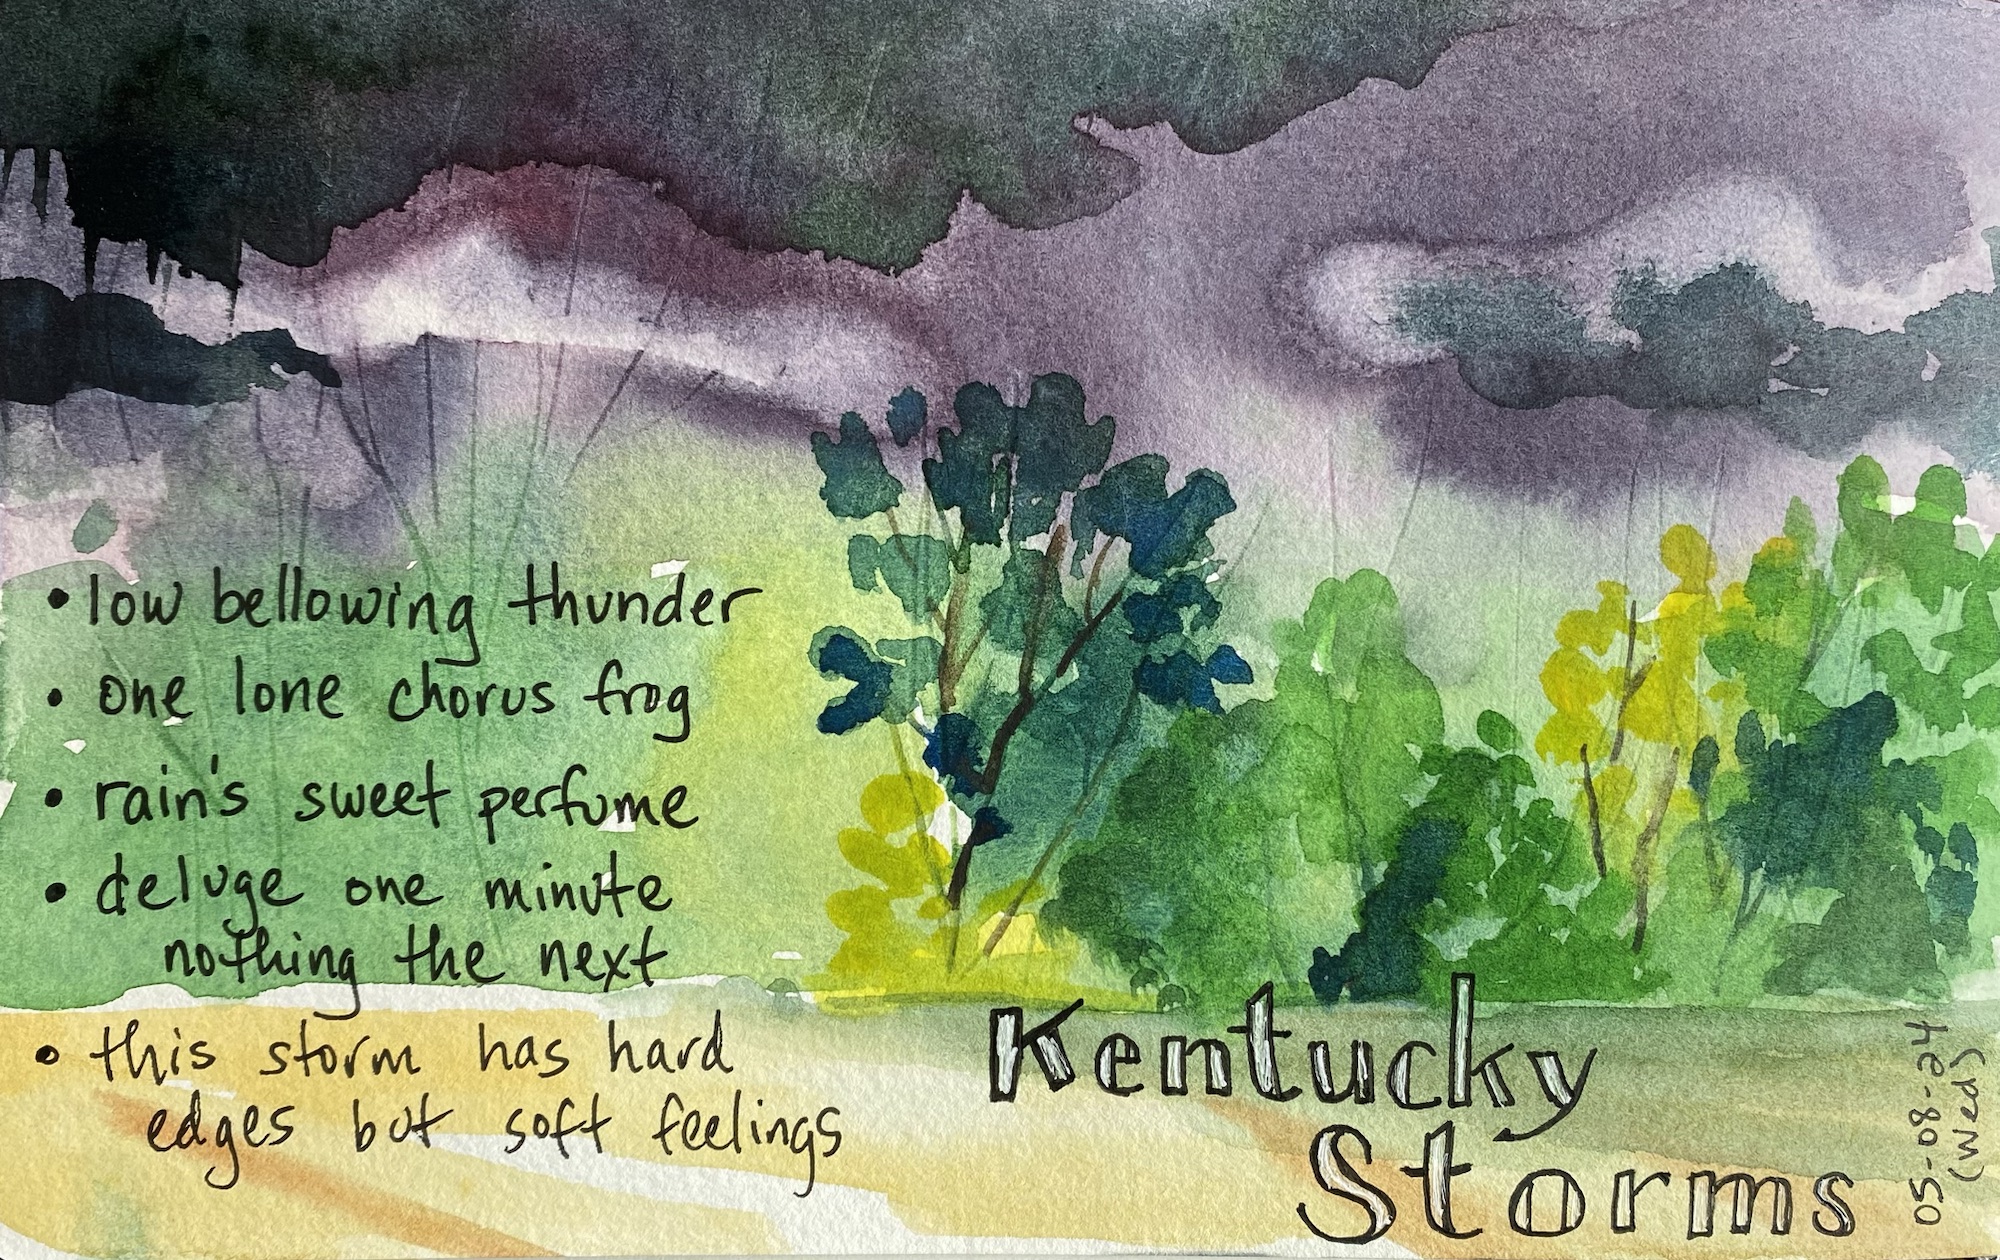 • low bellowing thunder
• one lone chorus frog
• rain's sweet perfume
• deluge one minute
nothing the next
• this storm has hard
edges but soft feelings
Kentucky
Storms
05-08-24
(Wed)